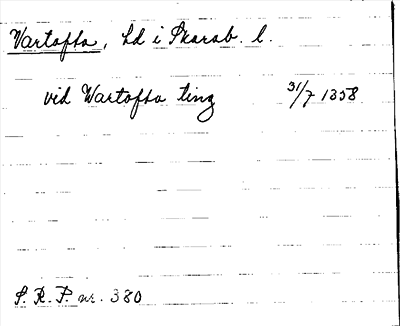 Vartofta, hd i Skarab. l.
vid Wartofta ting 31/7 1358
S. R. P. nr. 380